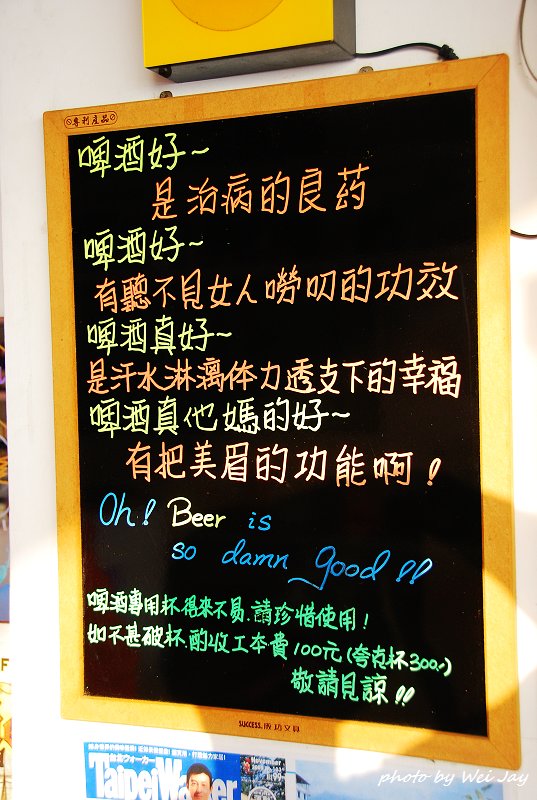 專利產品
啤酒好~
是治病的良药
啤酒好~
有聽不見女人嘮叨的功效
啤酒真好~
是汗水淋漓体力透支下的幸福
啤酒真他媽的好~
有把美眉的功能啊!
Oh! Beer is
so damn good!!
啤酒專用杯.得來不易.請珍惜使用!
如不甚破杯.酌收工本費100元(夸克杯300.-)
敬請見諒!!
SUCCESS. 成功文具
台北ウォーカー
Taipei Walker
November
photo by Wei Jay